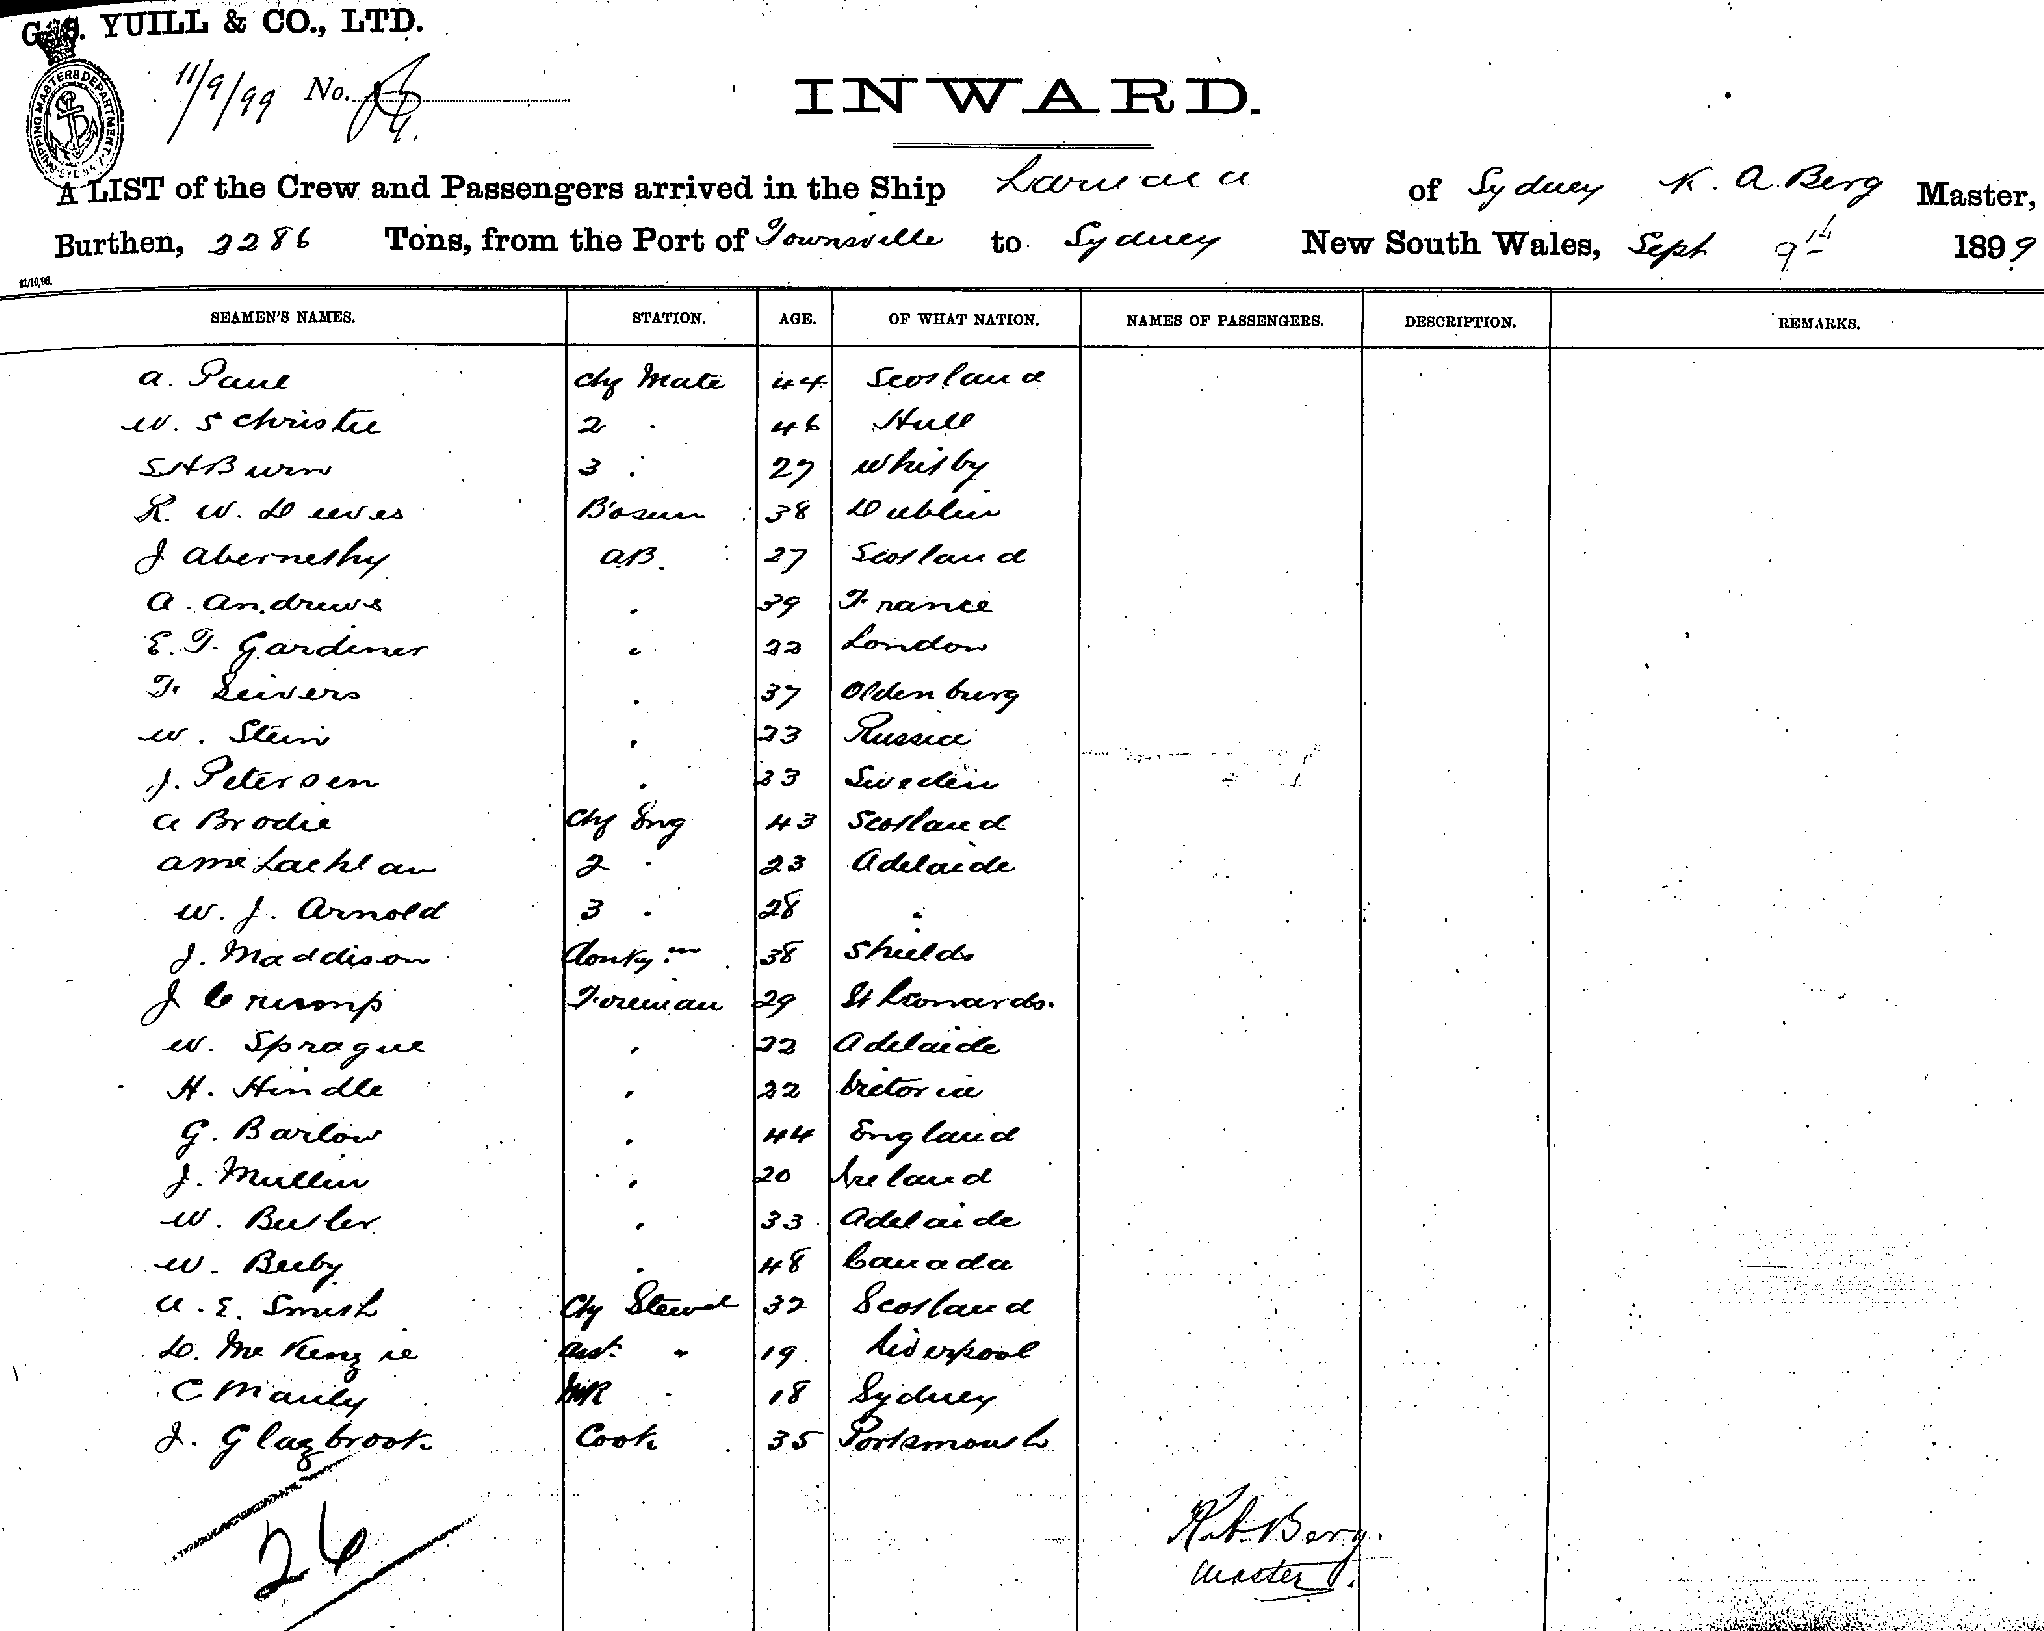 G. S. YUILL & CO., LTD.
SHIPPING MASTERS DEPARTMENT
11/9/99 No.
INWARD.
A LIST of the Crew and Passengers arrived in the Ship of Sydney K. A. Berg Master,
Burthen, 2286 Tons, from the Port of Townsville to Sydney New South Wales, Sept 9th 1899
SEAMEN'S NAMES. STATION. AGE. OF WHAT NATION. NAMES OF PASSENGERS. DESCRIPTION. REMARKS.
A. Paul Chf Mate 44 Scotland
W. S Christie 2 " 46 Hull
S H Burn 3 " 27 Whitby
R. W. 38 Dublin
J Abernethy AB. 27 Scotland
A. Andrews " 39 France
E. T. Gardiner " 22 London
F. Seivers " 37 Oldenburg
W. Stein " 23 Russia
J. Petersen " 33 Sweden
A Brodie Chf Eng 43 Scotland
A McLachlan 2 " 23 Adelaide
W. J. Arnold 3 " 28 "
J. Maddison donkyman 38 Shields
J Crump Fireman 29 St Leonards.
W. Sprague " 22 Adelaide
H. Hindle " 22 Victoria
G. Barlow " 44 England
J. Mullin " 20 Ireland
W. Butler " 33 Adelaide
W. Beeby " 48 Canada
A. E. Smith Chf Stewd 32 Scotland
D. McKenzie Asst. " 19 Liverpool
C 18 Sydney
J. Glazbrook Cook 35 Portsmouth
26
K. A. Berg.
Master.